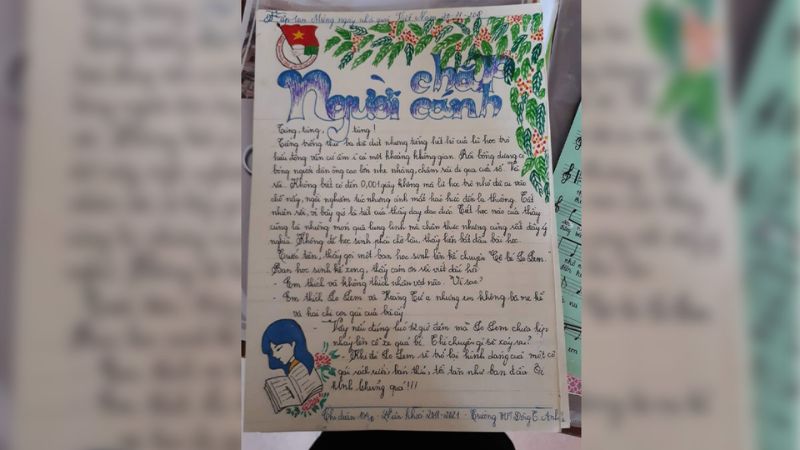 Nam 20-11
Người chắp cánh
Tùng, tùng, tùng!
Tiếng trống thứ ba đã dứt nhưng tiếng hét hò của lũ học trò
hiếu động vẫn cứ ầm ĩ cả một khoảng không gian. Rồi bỗng dưng có
bóng người đàn ông cao lớn nhẹ nhàng, chậm rãi đi qua cửa sổ.
Không biết có đến 0,001 giây không mà lũ học trò như đã vào
chỗ ngồi nghiêm túc nhưng ánh mắt háo hức đến lạ thường.
nhiên rồi, vì bây giờ là tiết của thầy dạy đạo đức. Tiết học nào của thầy
cũng là những món quà lung linh mà chân thực nhưng cũng rất đầy ý
nghĩa. Không để học sinh phải chờ lâu, thầy liền bắt đầu bài học.
Trước tiên, thầy gọi một bạn học sinh lên kể chuyện Cô bé Lọ Lem.
Bạn học sinh kể xong, thầy cảm ơn rồi bắt đầu hỏi:
- Em thích và không thích nhân vật nào. Vì sao?
- Em thích Lọ Lem và Hoàng Tử ạ nhưng em không bà mẹ kế
và hai chị con gái của bà ấy
- Vậy nếu đúng lúc 12 giờ đêm mà Lọ Lem chưa kịp
nhảy lên cỗ xe quả bí. Thì chuyện gì sẽ xảy ra?
- Khi đó Lọ Lem sẽ trở lại hình dạng của một cô
gái rách rưới bẩn thỉu, tồi tàn như ban đầu.
Chi đoàn - 2021 - Trường THPT Đông